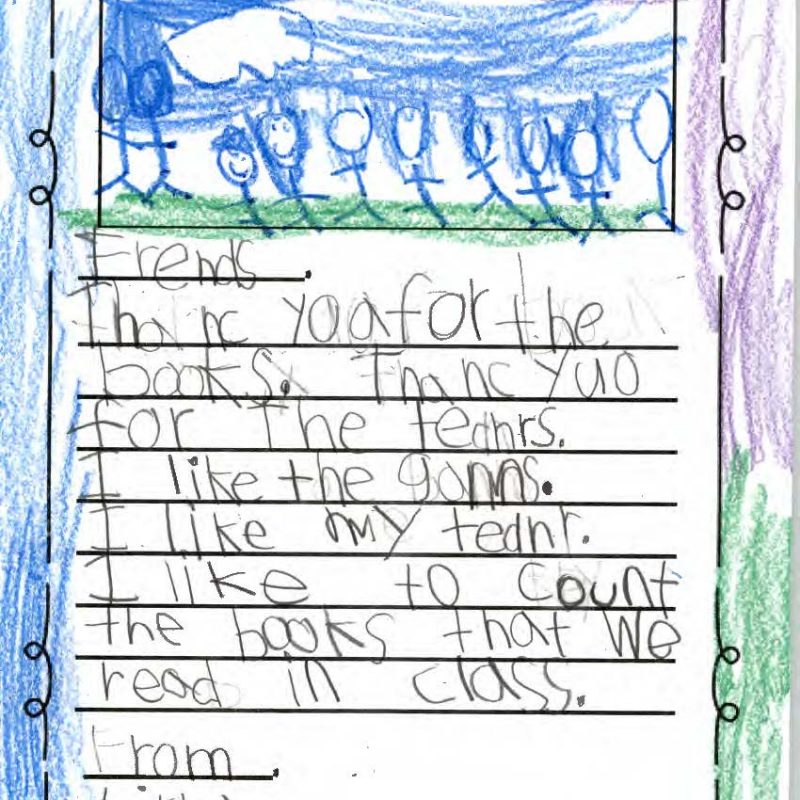 Frends.
Thanc yoa for the
books. Thanc yuo
for The teanrs.
I like the gonns.
I like my teanr.
I like to count
the books that We
read in class.
From.